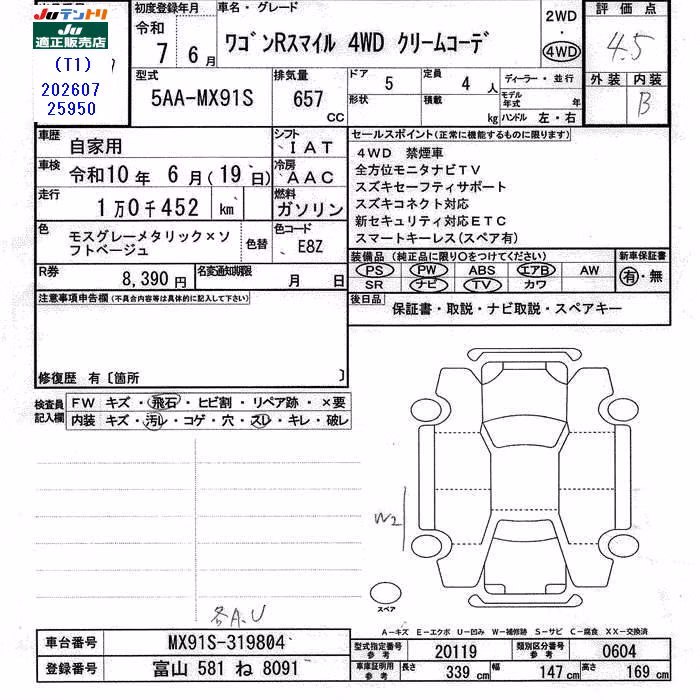 Juテントリ
Ju
適正販売店
(T1)
202607
25950
初度登録年月
令和
7 年 6 月
車名・グレード
ワゴンRスマイル 4WD クリームコーデ
2WD
・
4WD
評価点
4.5
外装 内装
B
型式
5AA-MX91S
排気量
657
CC
ドア
5
定員
4 人
形状
積載
kg
ディーラー・並行
モデル年式 年
ハンドル 左・右
車歴
自家用
シフト
IAT
車検
令和10 年 6 月 (19 日)
冷房
AAC
走行
1万0千452 km
燃料
ガソリン
色
モスグレーメタリック×ソ
フトベージュ
色替
色コード
E8Z
R券
8,390 円
名変通知期限
月 日
セールスポイント(正常に機能するものに限ります)
4WD 禁煙車
全方位モニタナビTV
スズキセーフティサポート
スズキコネクト対応
新セキュリティ対応ETC
スマートキーレス(スペア有)
装備品 (純正品に限り〇をつけてください)
新車保証書
PS PW ABS エアB AW
SR ナビ TV カワ
有・無
後日品
保証書・取説・ナビ取説・スペアキー
注意事項申告欄(不具合内容等は具体的に記入して下さい)
修復歴 有〔箇所 〕
検査員
記入欄
FW キズ・飛石・ヒビ割・リペア跡・×要
内装 キズ・汚レ・コゲ・穴・スレ・キレ・破レ
W2
スペア
各A.U
A-キズ E-エクボ U-凹み W-補修跡 S-サビ C-腐食 XX-交換済
車台番号
MX91S-319804
登録番号
富山 581 ね 8091
型式指定番号
参考
20119
類別区分番号
参考
0604
車庫証明用
参考
長さ
339 cm
幅
147 cm
高さ
169 cm